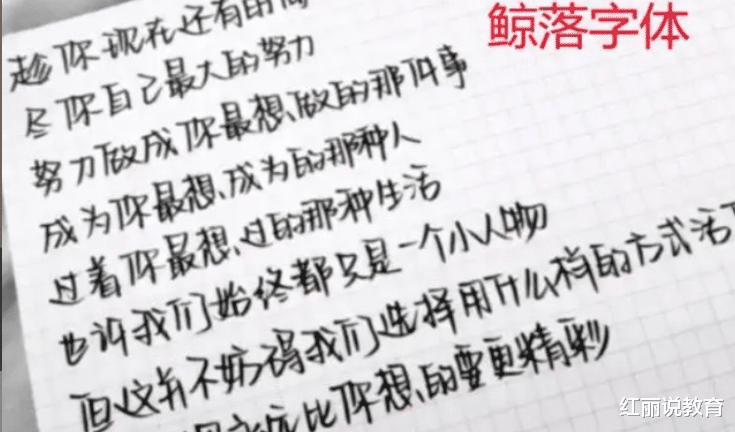 鲸落字体
趁你现在还有时间
尽你自己最大的努力
努力做成你最想做的那件事
成为你最想成为的那种人
过着你最想过的那种生活
也许我们始终都只是一个小人物
但这并不妨碍我们选择用什么样的方式活
比你想的要更精彩
红丽说教育